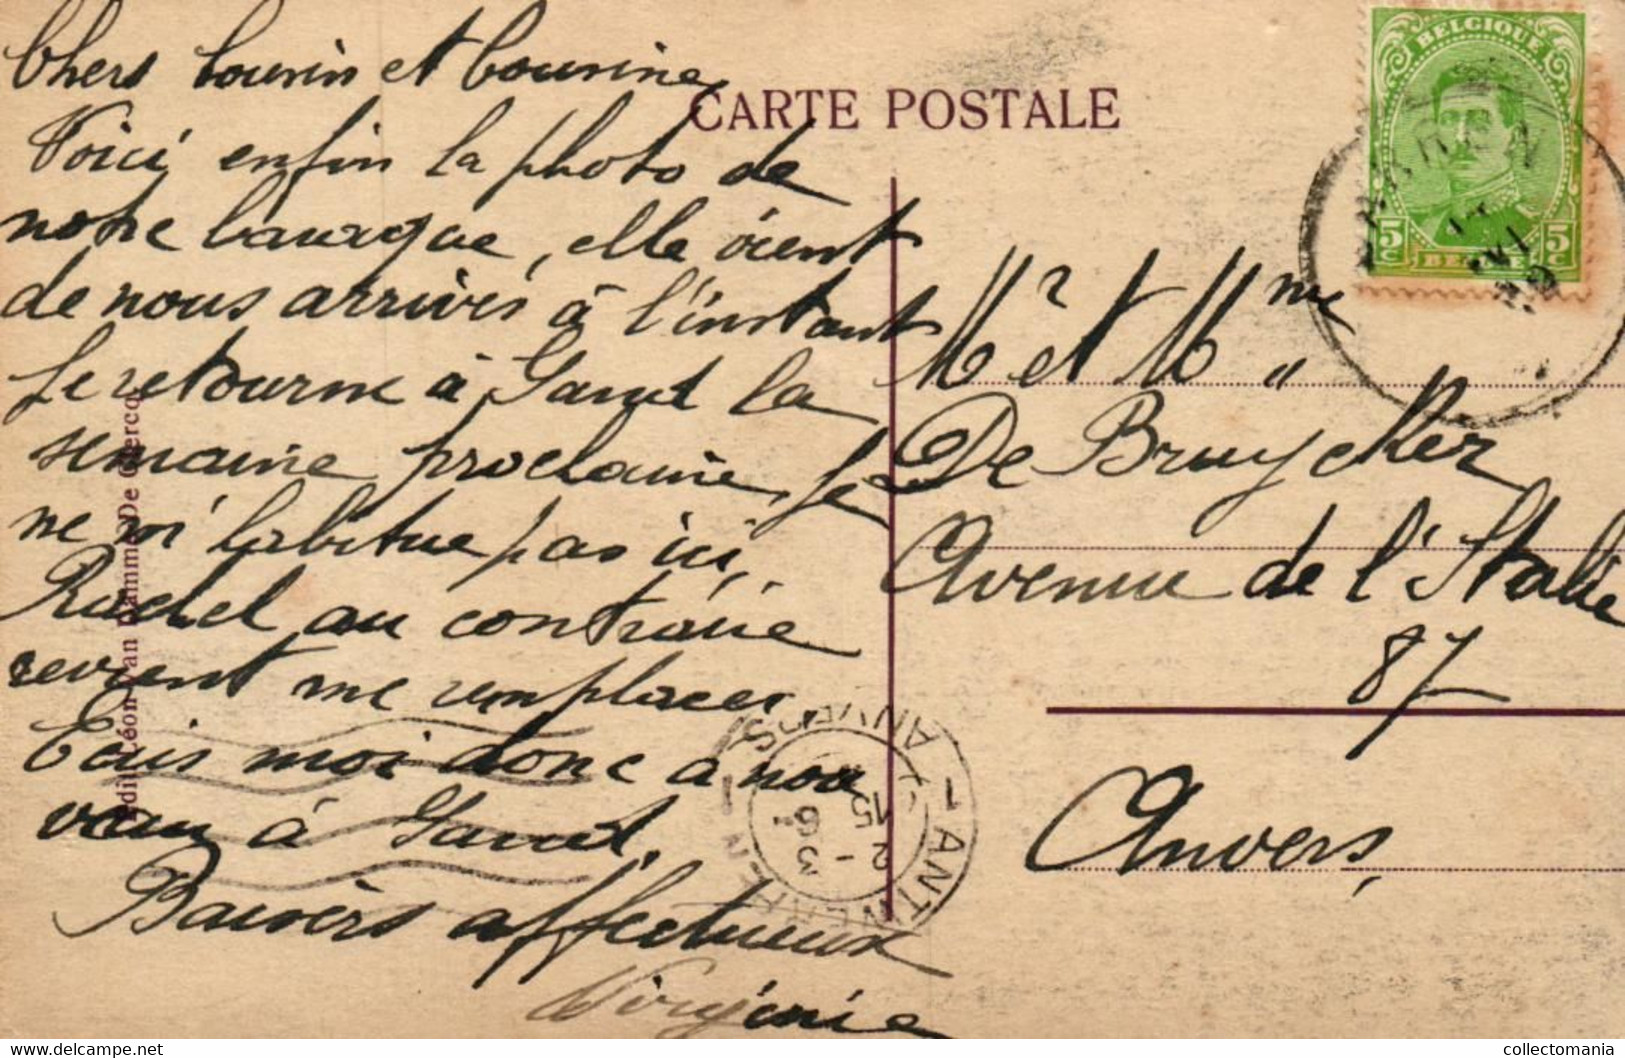 Chers Cousin et Cousine,
Voici enfin la photo de
notre baraque, elle vient
de nous arrivés à l'instant
Je retourne à Gand la
semaine prochaine, Je
ne m'habitue pas ici,
Rachel au contraire
revient me remplacer
Ecris moi donc à nou
veau à Gand.
Baisers affectueux
Virgénie
CARTE POSTALE
BELGIQUE
5c 5c
BELGIE
Mr et Mme
De Bruycker
Avenue de l'Italie
87
Anvers
Edit. Léon Van Damme-De Clercq
ANTWERPEN ANVERS
15
2 - 3
6
collectomania